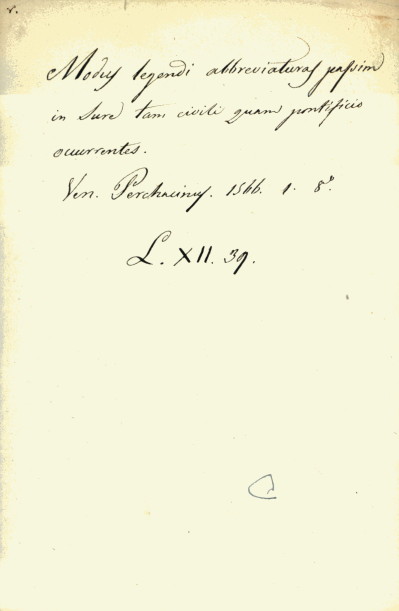 v.
Modus legendi abbreviaturas passim
in Jure tam civili quam pontificio
occurrentes.
Ven. Perchacinus. 1566. 1. 8°.
L. XII. 39.